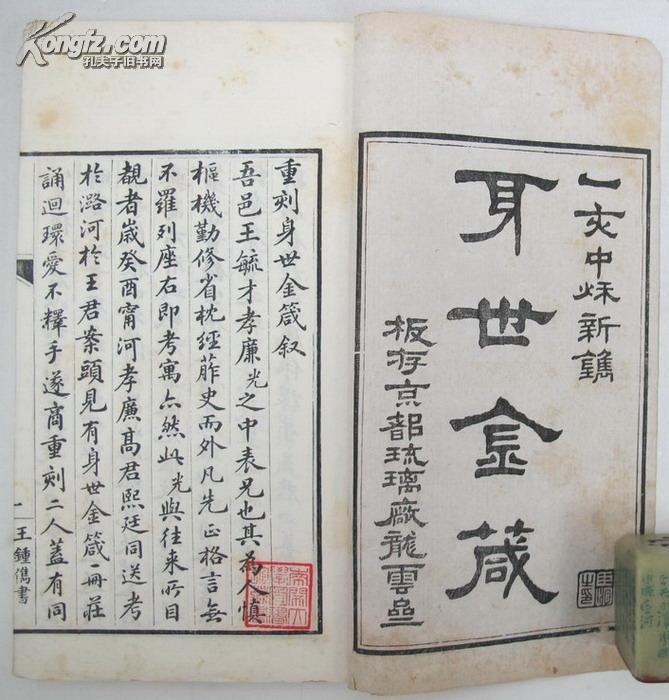 Kongfz.com
孔夫子旧书网
乙亥中秋新鐫
身世金箴
板存京都琉璃廠龍雲齋
重刻身世金箴叙
吾邑王毓才孝廉光之中表兄也其為人慎
樞機勤修省枕經葄史而外凡先正格言無
不羅列座右即考寓亦然此光與往来所目
覩者歲癸酉甯河孝廉高君熙廷同送考
於潞河於王君案頭見有身世金箴一冊莊
誦迴環愛不釋手遂商重刻二人蓋有同
一
王鍾儁書